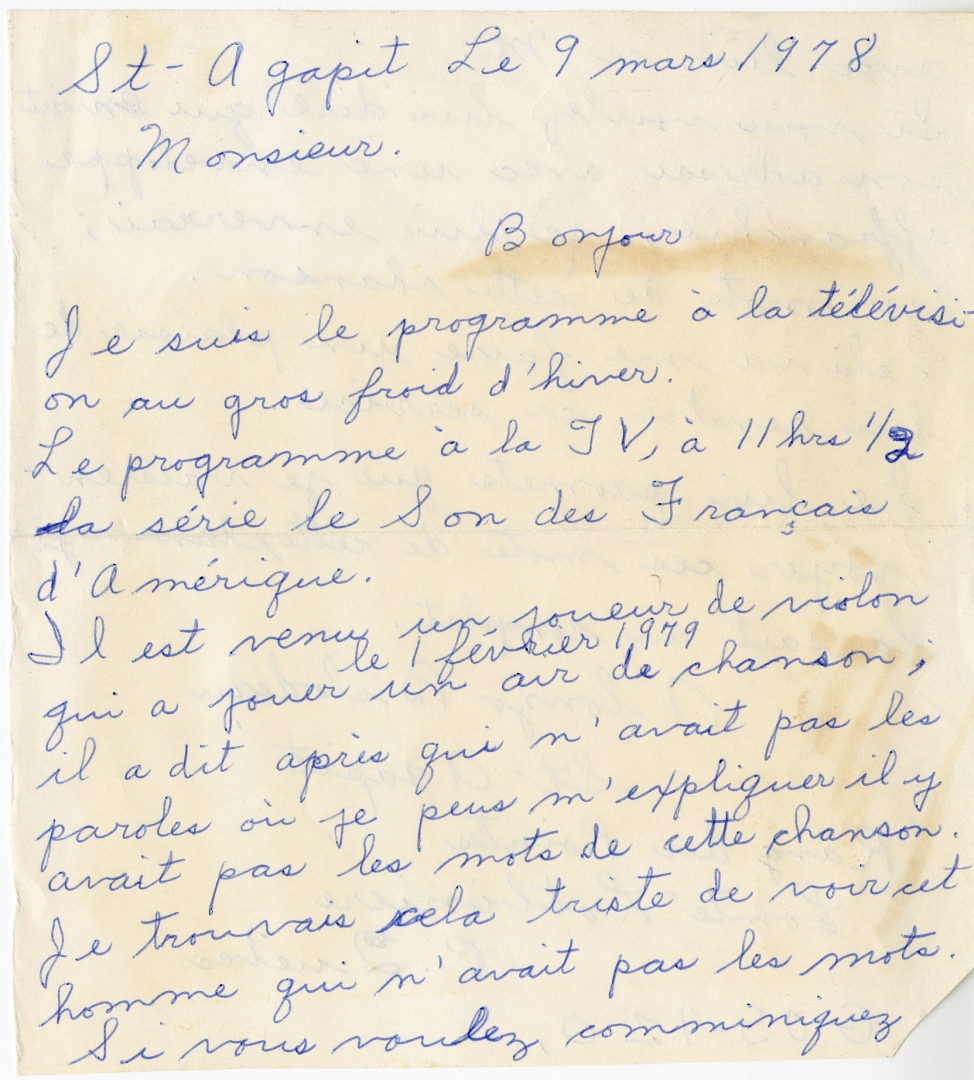 St-Agapit Le 9 mars 1978
Monsieur.
Bonjour
Je suis le programme à la télévisi-
on au gros froid d'hiver.
Le programme à la TV, à 11 hrs 1/2
la série le Son des Français
d'Amérique.
Il est venu un joueur de violon
le 1 février 1979
qui a jouer un air de chanson ;
il a dit après qui n'avait pas les
paroles où je peus m'expliquer il y
avait pas les mots de cette chanson.
Je trouvais cela triste de voir cet
homme qui n'avait pas les mots.
Si vous voulez comminiquez